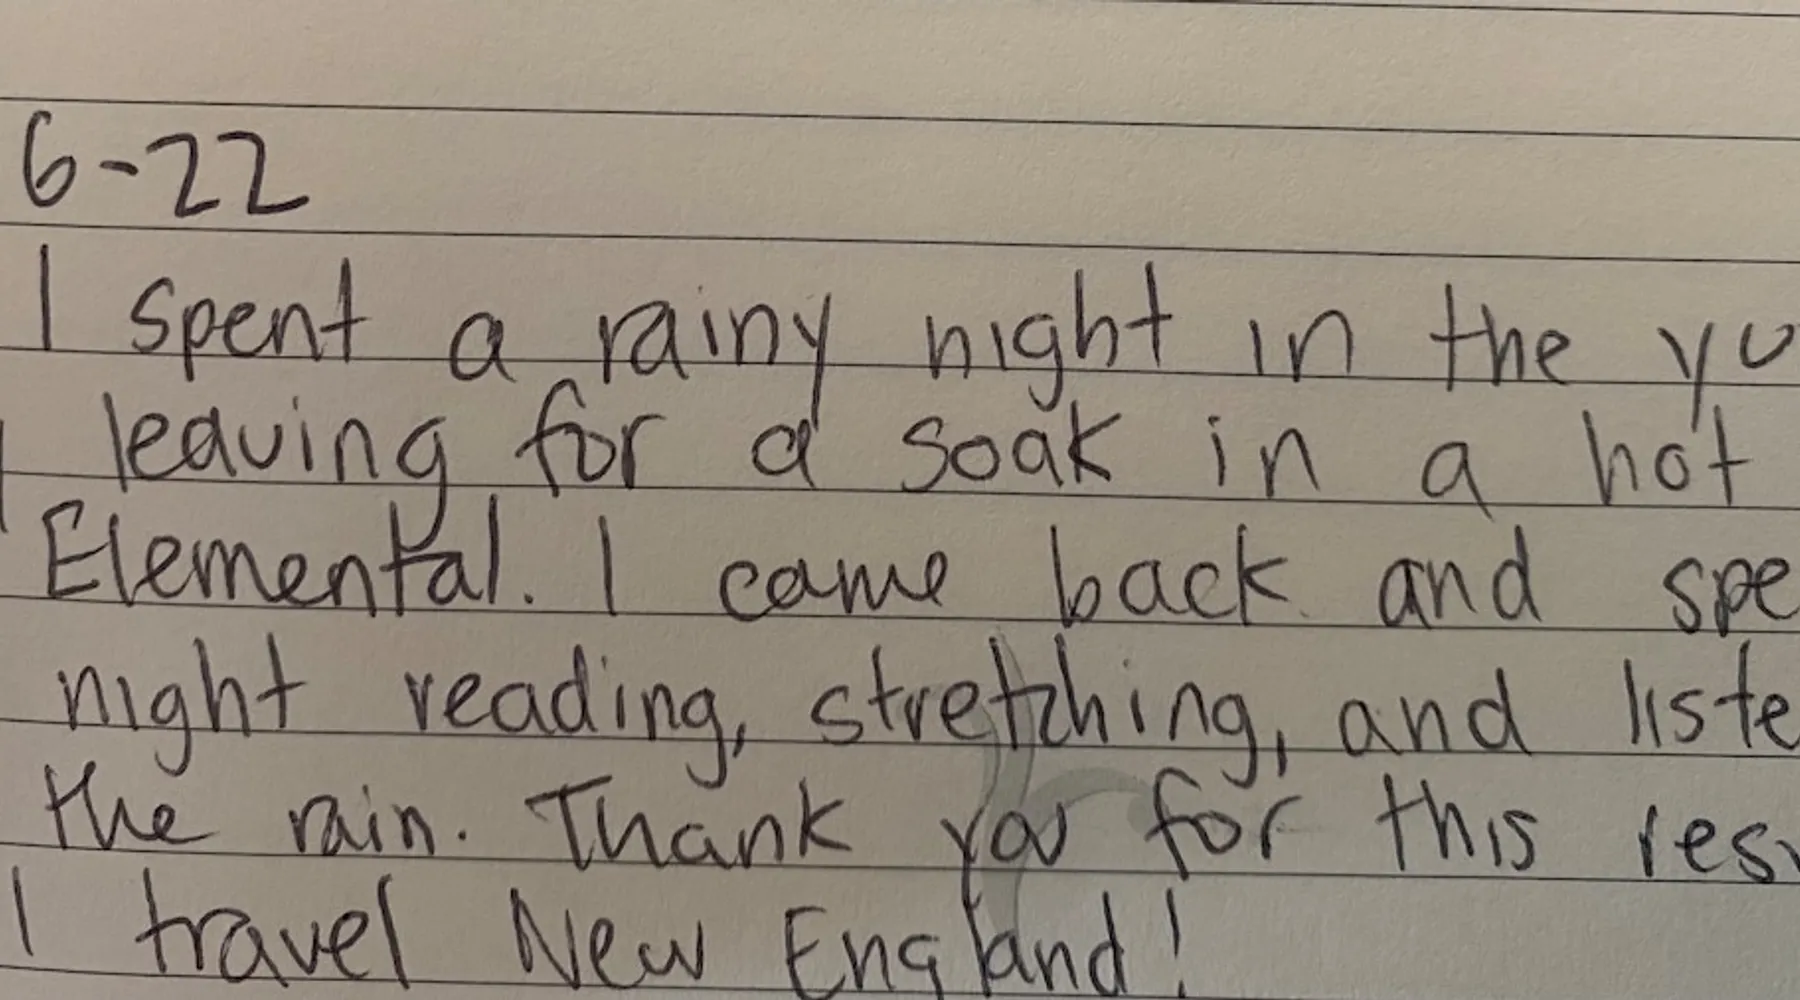 6-22
I spent a rainy night in the yu
leaving for a soak in a hot
Elemental. I came back and spe
night reading, stretching, and liste
the rain. Thank you for this res
I travel New England!